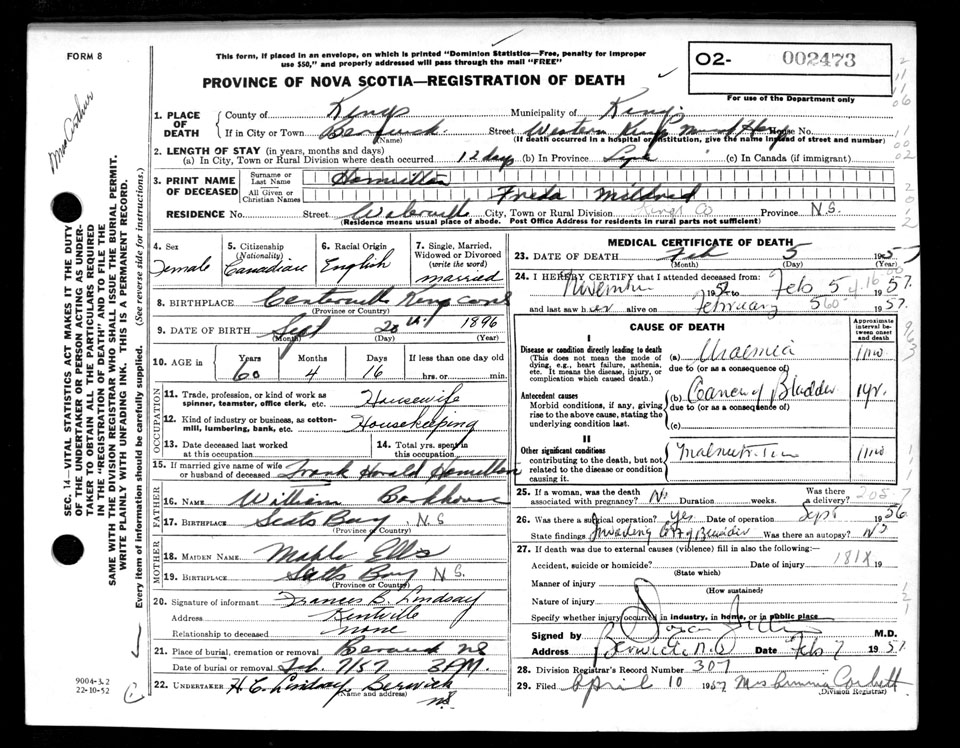 FORM 8
This form, if placed in an envelope, on which is printed "Dominion Statistics—Free, penalty for improper
use $50," and properly addressed will pass through the mail "FREE"
PROVINCE OF NOVA SCOTIA—REGISTRATION OF DEATH
O2- 002473
For use of the Department only
SEC. 14—VITAL STATISTICS ACT MAKES IT THE DUTY
OF THE UNDERTAKER OR PERSON ACTING AS UNDER-
TAKER TO OBTAIN ALL THE PARTICULARS REQUIRED
IN THE "REGISTRATION OF DEATH" AND TO FILE THE
SAME WITH THE DIVISION REGISTRAR WHO SHALL ISSUE THE BURIAL PERMIT.
WRITE PLAINLY WITH UNFADING INK. THIS IS A PERMANENT RECORD.
Every item of information should be carefully supplied. (See reverse side for instructions.)
1. PLACE OF DEATH
County of Kings Municipality of Kings
If in City or Town Berwick Street Western Kings House No.
(Name) (If death occurred in a hospital or institution, give the name instead of street and number)
2. LENGTH OF STAY (in years, months and days)
(a) In City, Town or Rural Division where death occurred 12 days (b) In Province Life (c) In Canada (if immigrant)
3. PRINT NAME OF DECEASED
Surname or Last Name Hamilton
All Given or Christian Names Freda Mildred
RESIDENCE No. Street Waterville City, Town or Rural Division Kings Co Province N.S.
(Residence means usual place of abode. Post Office Address for residents in rural parts not sufficient)
4. Sex Female
5. Citizenship (Nationality) Canadian
6. Racial Origin English
7. Single, Married, Widowed or Divorced (write the word) married
8. BIRTHPLACE Centerville Kings
(Province or Country)
9. DATE OF BIRTH Sept 20th 1896
(Month) (Day) (Year)
10. AGE in Years 60 Months 4 Days 16 If less than one day old
hrs. or min.
OCCUPATION
11. Trade, profession, or kind of work as spinner, teamster, office clerk, etc. Housewife
12. Kind of industry or business, as cotton-mill, lumbering, bank, etc. Housekeeping
13. Date deceased last worked at this occupation
14. Total yrs. spent in this occupation
15. If married give name of wife or husband of deceased Frank Harold Hamilton
FATHER
16. NAME William Barkhouse
17. BIRTHPLACE Scots Bay N S
(Province or Country)
MOTHER
18. MAIDEN NAME Mable Ells
19. BIRTHPLACE Scotts Bay N S.
(Province or Country)
20. Signature of informant Frances B. Lindsay
Address Kentville
Relationship to deceased none
21. Place of burial, cremation or removal Berwick NS
Date of burial or removal Feb. 7/57 3 P.M.
22. UNDERTAKER H C Lindsay Berwick
(Name and address) NS
9004-3.2
22-10-52
MEDICAL CERTIFICATE OF DEATH
23. DATE OF DEATH Feb 5 1957
(Month) (Day) (Year)
24. I HEREBY CERTIFY that I attended deceased from:
November 1956 to Feb 5 1957.
and last saw her alive on February 5 1957.
CAUSE OF DEATH
Approximate interval between onset and death
I
Disease or condition directly leading to death (a) Uraemia 1 mo
(This does not mean the mode of dying, e.g., heart failure, asthenia, etc. It means the disease, injury, or complication which caused death.)
due to (or as a consequence of)
Antecedent causes (b) Cancer of Bladder 1 yr.
Morbid conditions, if any, giving rise to the above cause, stating the underlying condition last.
due to (or as a consequence of)
(c)
II
Other significant conditions Malnutrition 1 mo
contributing to the death, but not related to the disease or condition causing it.
25. If a woman, was the death associated with pregnancy? No Duration weeks. Was there a delivery?
26. Was there a surgical operation? yes Date of operation Sept 1956
State findings Invading Bladder Was there an autopsy? No
27. If death was due to external causes (violence) fill in also the following:—
Accident, suicide or homicide? Date of injury 181X 19
(State which)
Manner of injury
(How sustained)
Nature of injury
Specify whether injury occurred in industry, in home, or in public place
Signed by M.D.
Address Berwick N.S. Date Feb 7 1957.
28. Division Registrar's Record Number 307
29. Filed April 10 1957 Mrs Corbett
(Division Registrar)